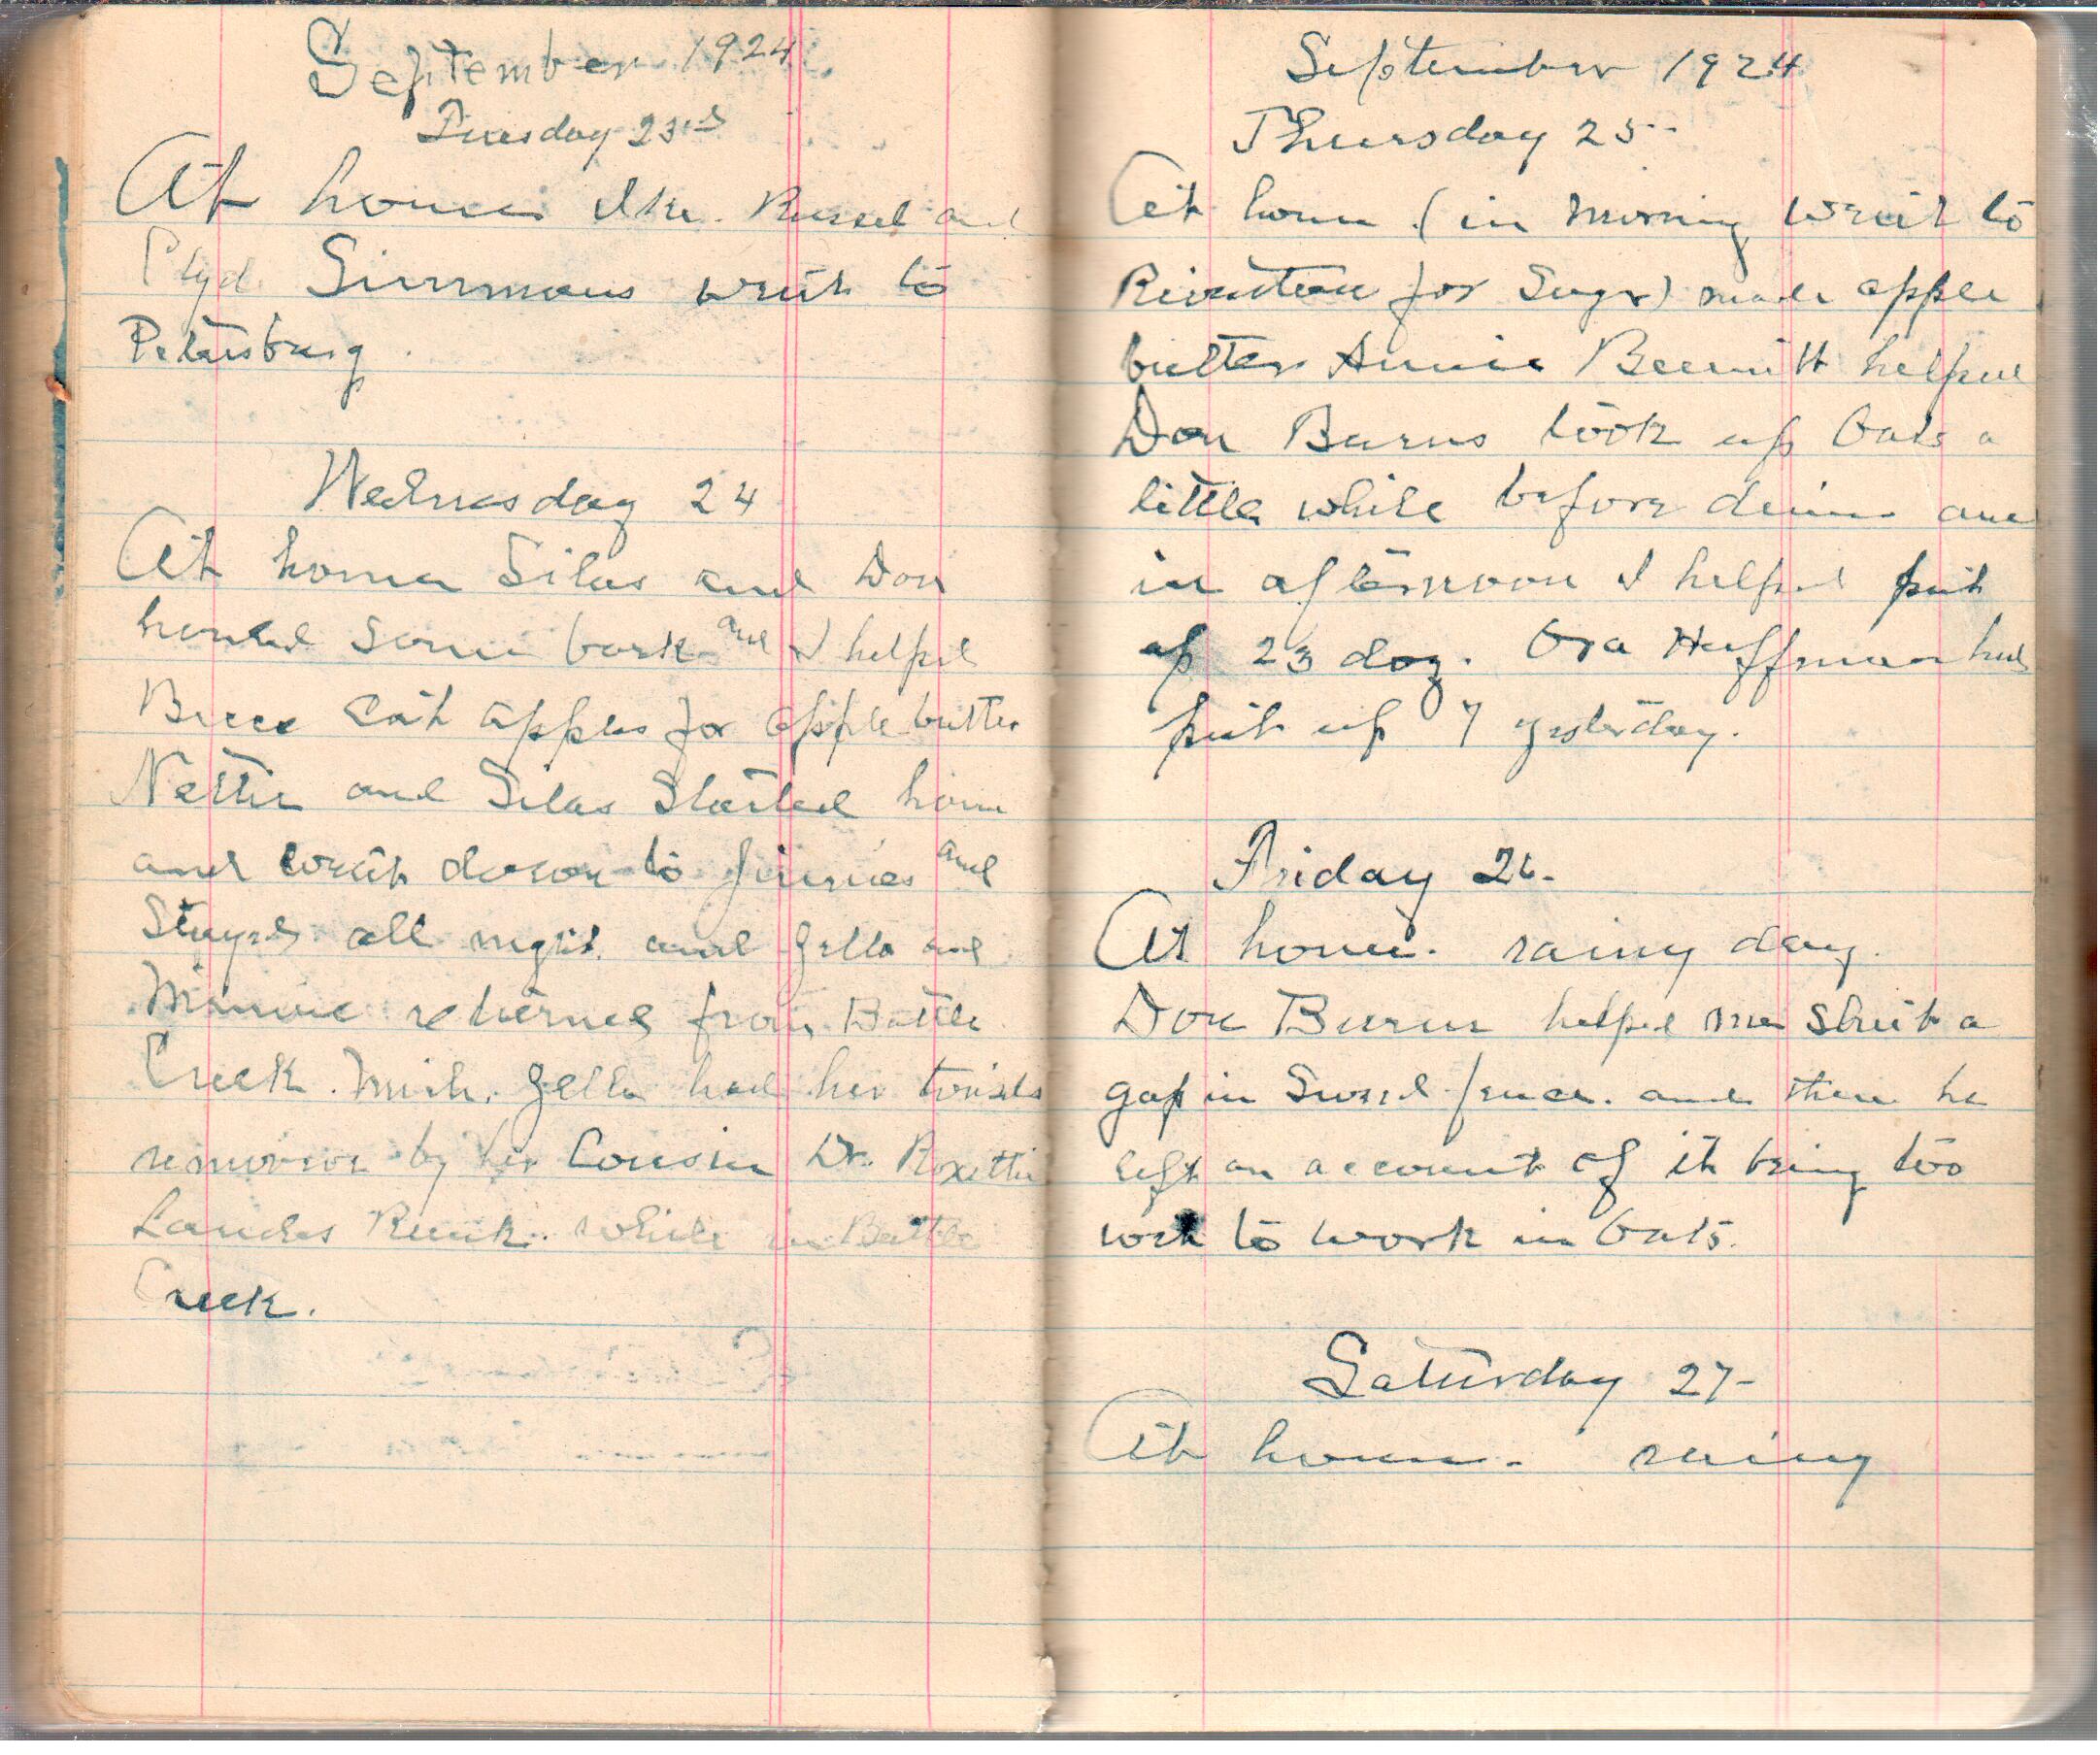 September 1924
Tuesday 23rd
At home Ike. Russel and
Clyd Simmons went to
Petersburg.
Wednesday 24
At home Silas and Don
hauled some bark and I helped
Bree cut apples for apple butter
Nettie and Silas Started home
and went down to Jinnies and
Stayed all night. and Zella and
Minnie returned from Battle
Creek. Mich. Zella had her tonsils
removed by her Cousin Dr. Roxettie
Landes while in Battle
Creek.
September 1924
Thursday 25
At home (in morning went to
Riverton for Sugr) made apple
butter Annie helped
Don Burns took up Oats a
little while before dinner and
in afternoon I helped put
up 23 doz. Ora Huffman had
put up 7 yesterday.
Friday 26-
At home. rainy day.
Don Burns helped me Shut a
gap in fence. and then he
left on account of it being too
wet to work in Oats.
Saturday 27-
At home. rainy